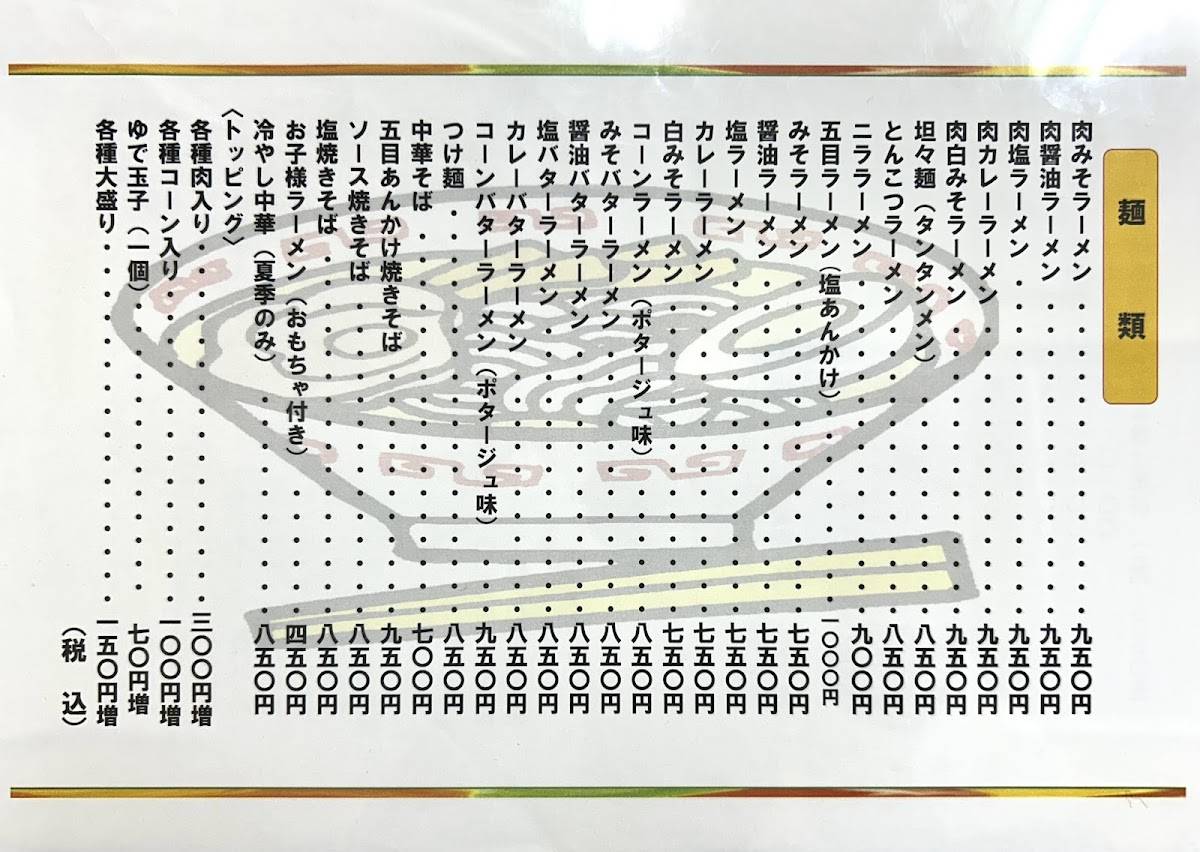 麺 類
肉みそラーメン・・・・・・・・・・・・・九五〇円
肉醤油ラーメン・・・・・・・・・・・・・九五〇円
肉塩ラーメン・・・・・・・・・・・・・・九五〇円
肉カレーラーメン・・・・・・・・・・・・九五〇円
肉白みそラーメン・・・・・・・・・・・・九五〇円
坦々麺（タンタンメン）・・・・・・・・・・八五〇円
とんこつラーメン・・・・・・・・・・・・八五〇円
ニララーメン・・・・・・・・・・・・・・九〇〇円
五目ラーメン（塩あんかけ）・・・・・・・・一〇〇〇円
みそラーメン・・・・・・・・・・・・・・七五〇円
醤油ラーメン・・・・・・・・・・・・・・七五〇円
塩ラーメン・・・・・・・・・・・・・・・七五〇円
カレーラーメン・・・・・・・・・・・・・七五〇円
白みそラーメン・・・・・・・・・・・・・七五〇円
コーンラーメン（ポタージュ味）・・・・・・八五〇円
みそバターラーメン・・・・・・・・・・・八五〇円
醤油バターラーメン・・・・・・・・・・・八五〇円
塩バターラーメン・・・・・・・・・・・・八五〇円
カレーバターラーメン・・・・・・・・・・八五〇円
コーンバターラーメン（ポタージュ味）・・・・九五〇円
つけ麺・・・・・・・・・・・・・・・・・八五〇円
中華そば・・・・・・・・・・・・・・・・七〇〇円
五目あんかけ焼きそば・・・・・・・・・・九五〇円
ソース焼きそば・・・・・・・・・・・・・八五〇円
塩焼きそば・・・・・・・・・・・・・・・八五〇円
お子様ラーメン（おもちゃ付き）・・・・・・四五〇円
冷やし中華（夏季のみ）・・・・・・・・・・八五〇円
〈トッピング〉
各種肉入り・・・・・・・・・・・・・・・三〇〇円増
各種コーン入り・・・・・・・・・・・・・一〇〇円増
ゆで玉子（一個）・・・・・・・・・・・・・七〇円増
各種大盛り・・・・・・・・・・・・・・・一五〇円増
（税 込）